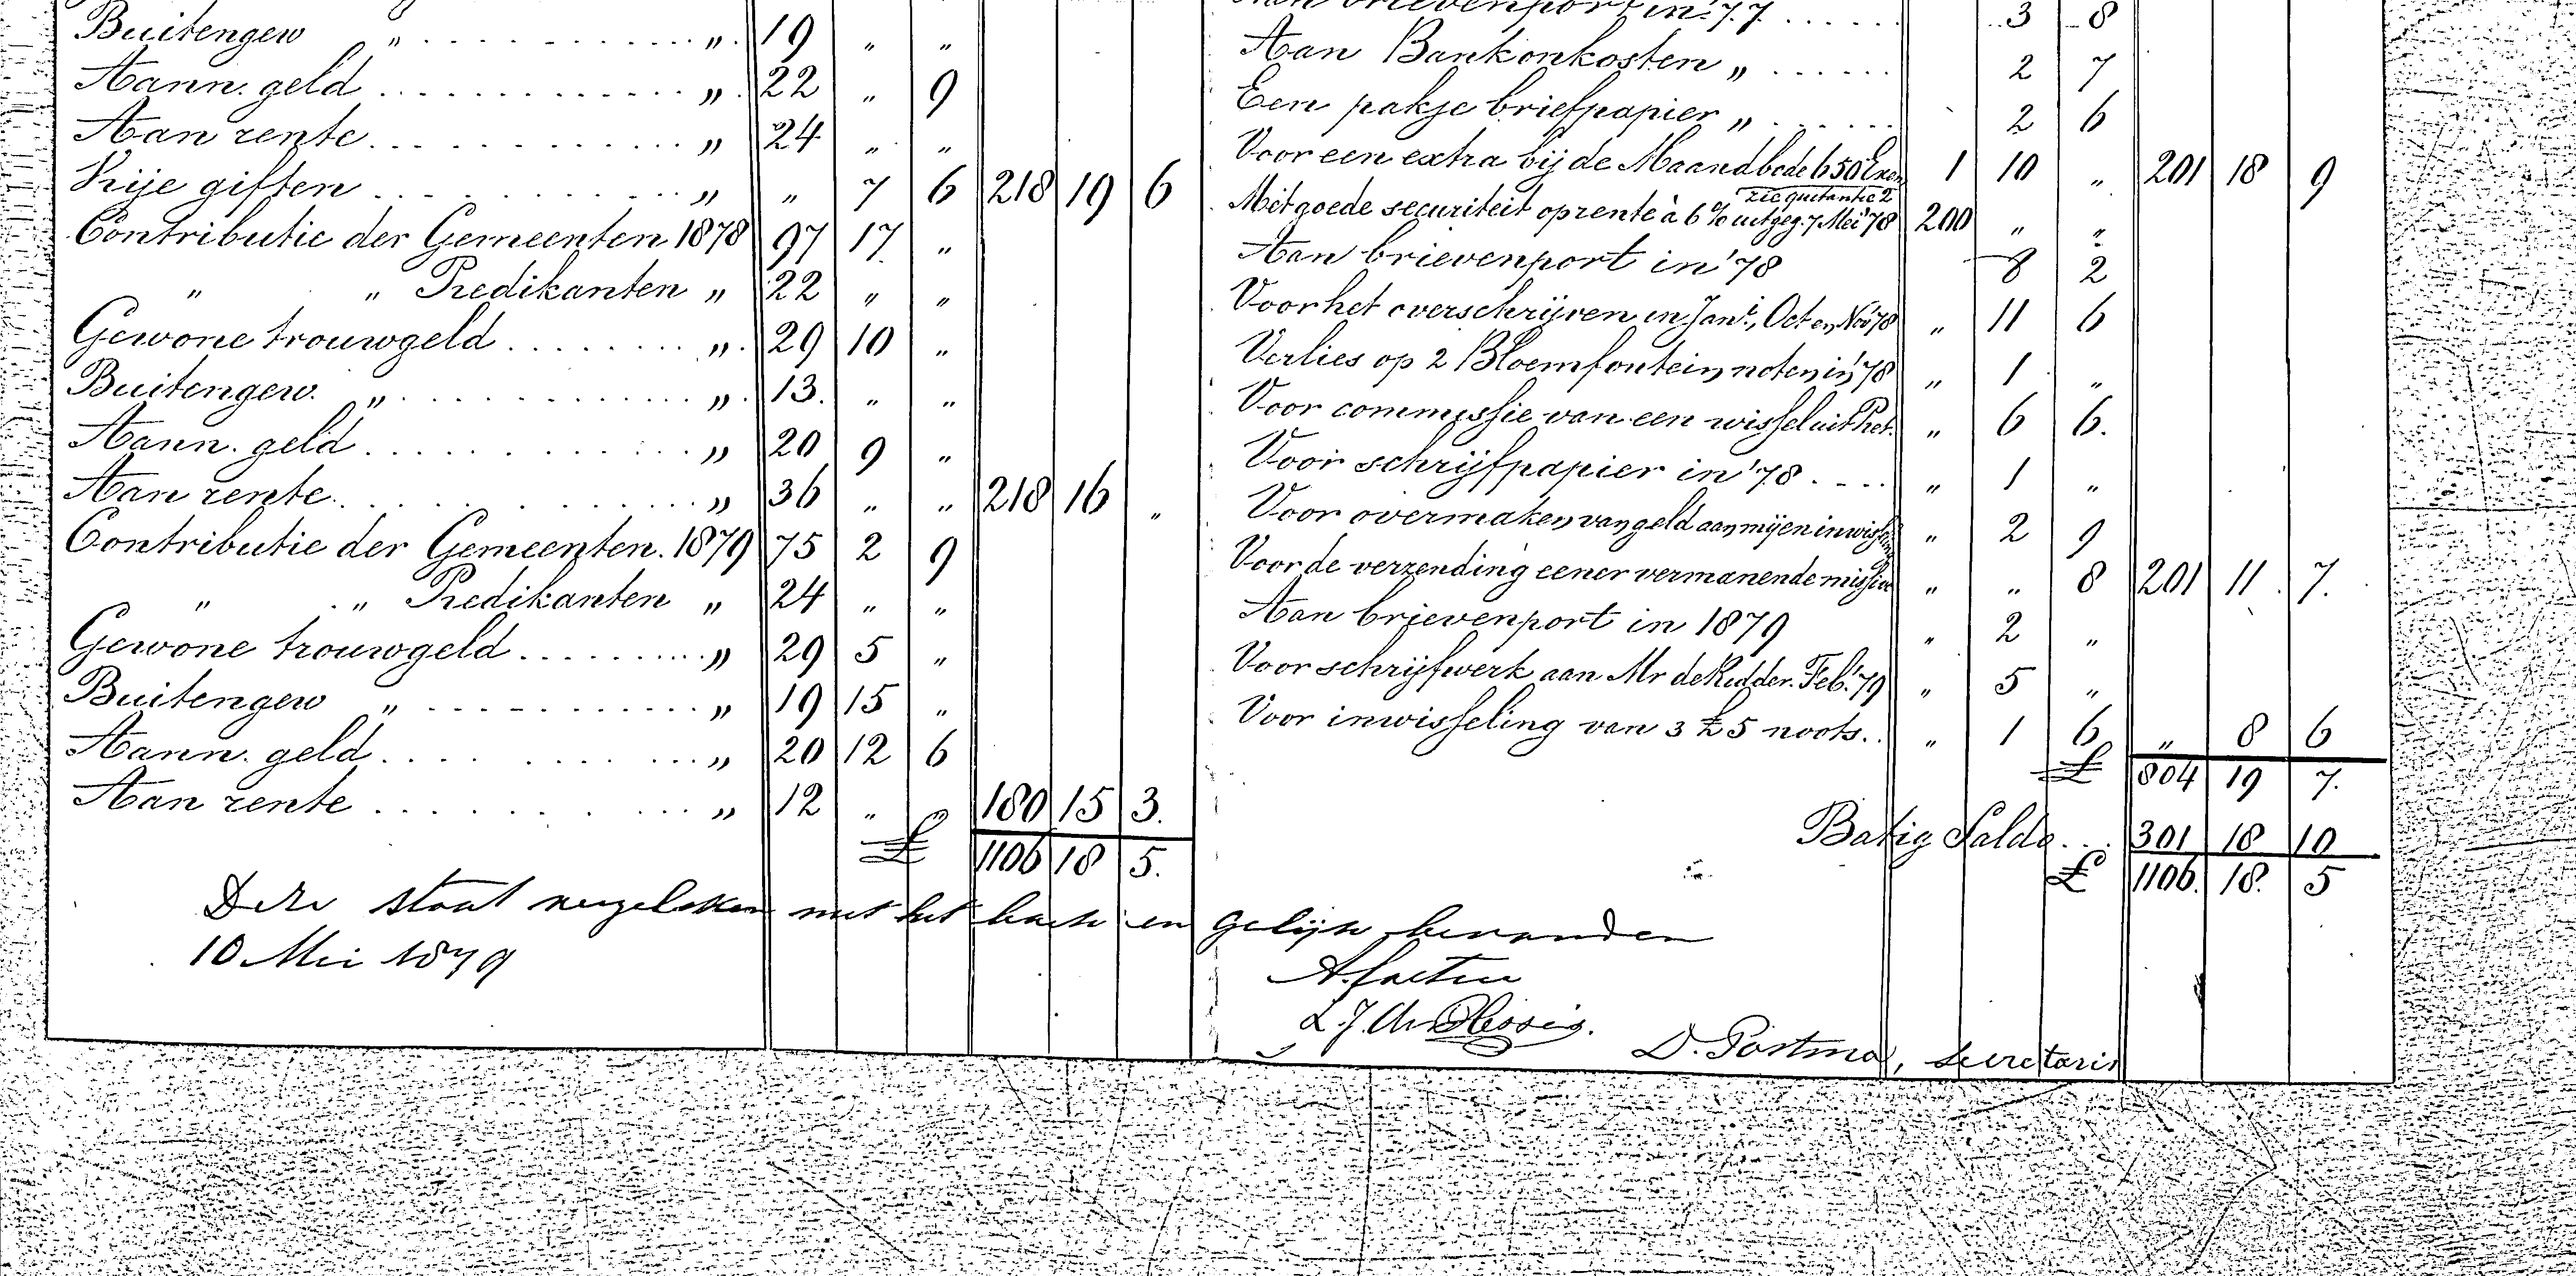 Buitengew „ . . . . . . . . . . . . „ . 19 „ „
Aann. geld . . . . . . . . . . . . . „ . 22 „ 9
Aan rente . . . . . . . . . . . . . „ 24 „ „
Vrije giften . . . . . . . . . . . . „ „ 7 6 218 19 6
Contributie der Gemeenten 1878 97 17 „
„ „ Predikanten „ 22 „ „
Gewone trouwgeld . . . . . . . . „ . 29 10 „
Buitengew. „ . . . . . . . . . . . . „ . 13. „ „
Aann. geld . . . . . . . . . . . . . „ 20 9 „
Aan rente . . . . . . . . . . . . . „ 36 „ „ 218 16 „
Contributie der Gemeenten. 1879 75 2 9
„ „ Predikanten „ 24 „ „
Gewone trouwgeld . . . . . . . . . „ 29 5 „
Buitengew „ . . . . . . . . . . . . „ 19 15 „
Aann. geld . . . . . . . . . . . . „ 20 12 6
Aan rente . . . . . . . . . . . . . „ 12 „ „ 180 15 3.
£ 1106 18 5.
Aan brievenport in '77 . . . . . . 3 8
Aan Bankonkosten „ . . . . . . 2 7
Een pakje briefpapier „ . . . . . . 2 6
Voor een extra bij de Maandbode 650 Exen 1 10 „ 201 18 9
zie quitantie 2
Met goede securiteit op rente à 6 % uitgeg. 7 Mei '78 200 „ „
Aan brievenport in '78 8 2
Voor het overschrijven in Jani., Oct en Nov '78 „ 11 6
Verlies op 2 Bloemfontein noten in '78 „ 1 „
Voor commissie van een wissel uit Pret. „ 6 6.
Voor schrijfpapier in '78 . . . . „ 1 „
Voor overmaken van geld aan mij en inwisseling „ 2 9
Voor de verzending eener vermanende missive „ „ 8 201 11 7.
Aan brievenport in 1879 „ 2 „
Voor schrijfwerk aan Mr de Ridder. Feb. '79 „ 5 „
Voor inwisseling van 3 £ 5 noots. . „ 1 6 „ 8 6
£ 804 19 7.
Batig Saldo . . . 301 18 10
£ 1106. 18. 5
Deze staat vergeleken met het boek en gelijk bevonden
10 Mei 1879
L. J. du Plessis.
D. Postma, secretaris